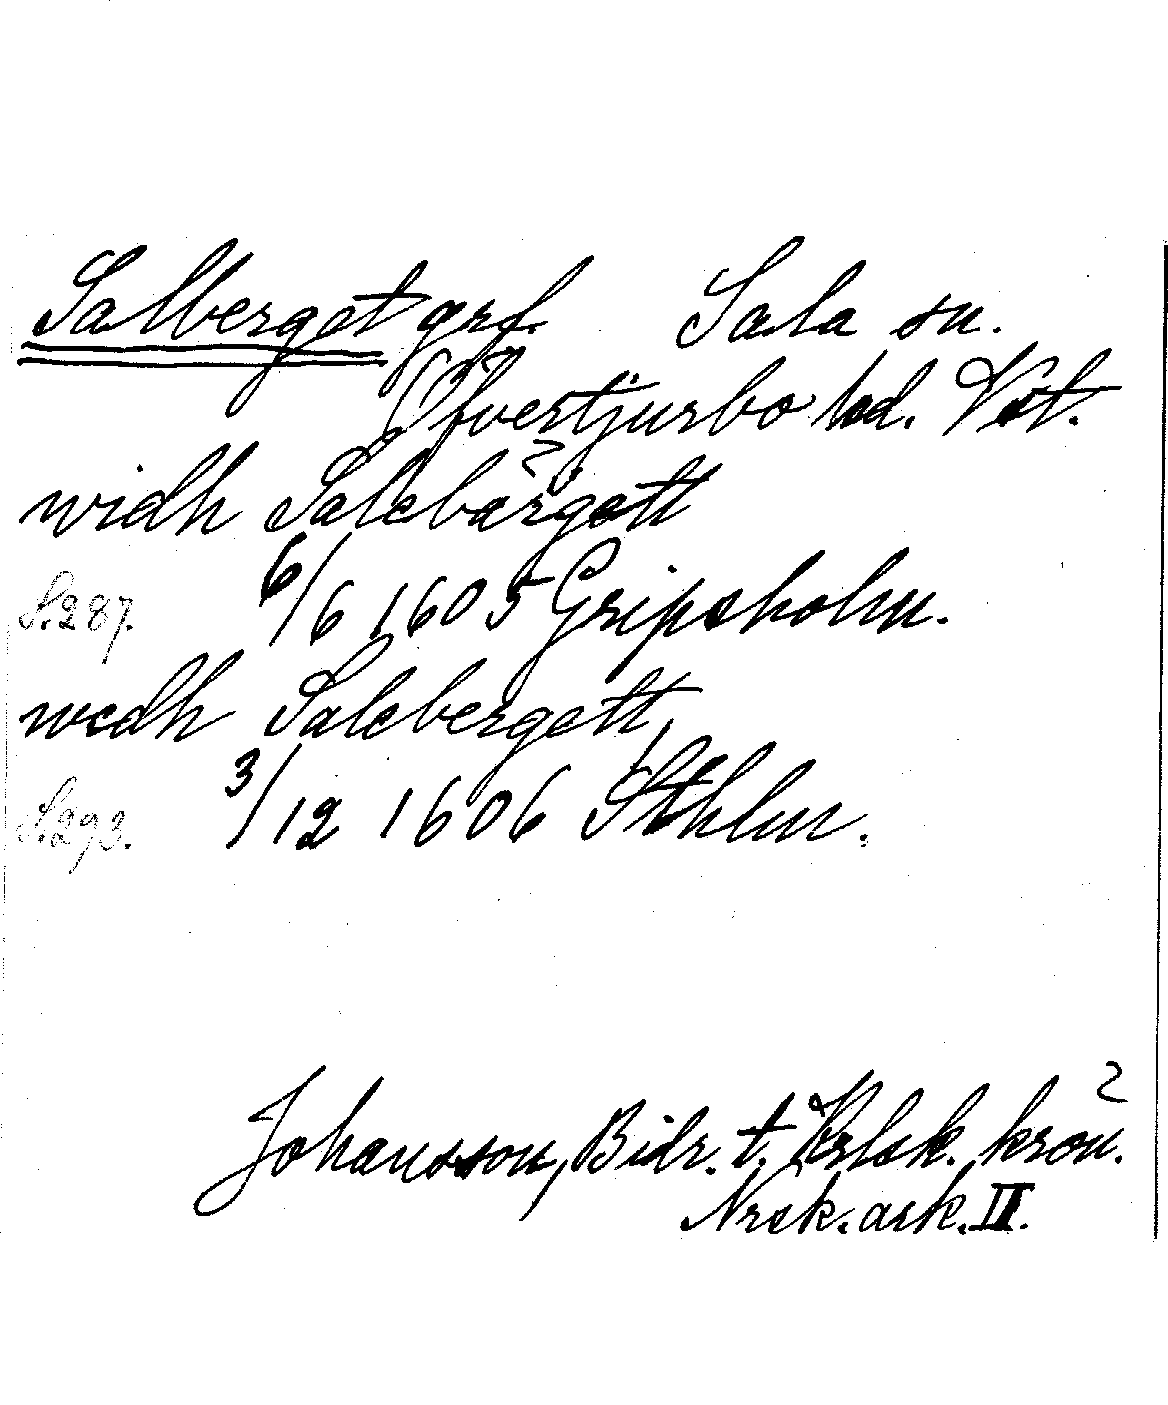 Salberget grf. Sala sn.
Öfvertjurbo hd. Vst.
widh Salebärgett
S. 287. 6/6 1605 Gripsholm.
wedh Salebergett,
S. 293. 3/12 1606 Sthlm.
Johansson, Bidr. t. Krlsk. krön.
Nrsk. ark. II.